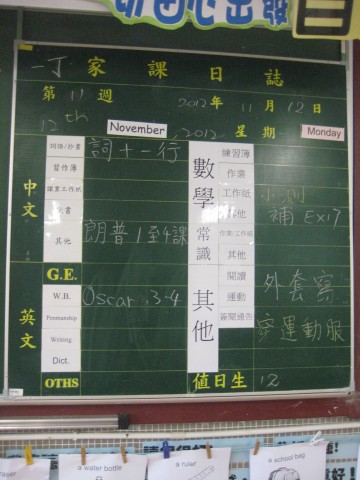 切由心出發
一丁 家課日誌
第 11 週 2012年 11月 12日
12th November, 2012 星期 Monday
中文
詞語/抄書 詞十一行
習作簿
課業工作紙
其他 朗普1至4課
G.E.
英文
W.B. Oscar 3-4
Penmanship
Writing
Dict.
OTHS
數學
練習簿
作業
工作紙 小測
其他 補 Ex17
常識
作業/工作紙
其他
其他
閱讀 外套
運動
簽閱通告 穿運動服
值日生 12
a water bottle
a ruler
a school bag